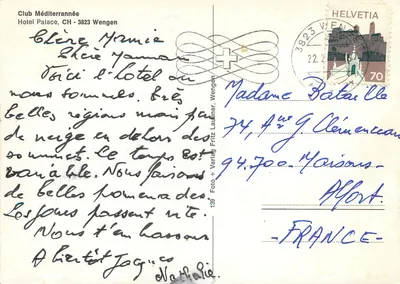 Club Méditerrannée
Hotel Palace, CH - 3823 Wengen
Chère Mamie
Chère Maman
Voici l'hotel ou
nous sommes. Très
belles régions mais peu
de neige en dehors des
sommets. Le temps est
variable. Nous faisons
de belles promenades.
Les jours passent vite.
Nous t'embrassons
A bientôt Jacques
Nathalie
139 Foto + Verlag Fritz Lauener, Wengen
3823 WEN
22.
HELVETIA
70
Madame Bataille
74, Ave G. Clémenceau
94.700 - Maisons -
Alfort.
- FRANCE -